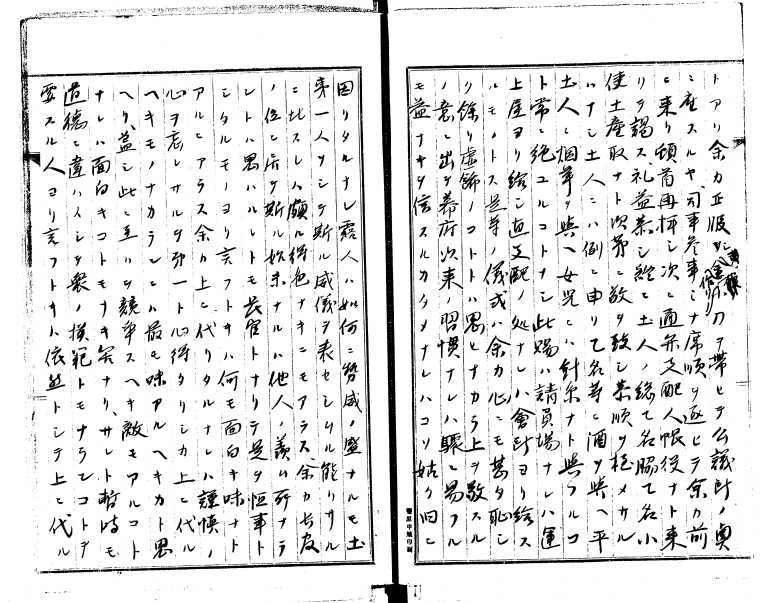 トアリ余カ正服ヲシ金ハノ刀ヲ帯ヒテ公議所ノ奥
ニ座スルヤ司事参事ミナ席順ヲ逐ヒテ余カ前
ニ来リ頓首再拝シ次ニ通弁支配人帳役ナト来
リテ謁ス礼益恭シ終ニ土人ノ総て名脇て名小
使土産取ナト次第ニ敬ヲ致シ柔順ヲ極メサル
ハナシ土人ニハ例ニ申リて名等ニ酒ヲ與ヘ平
土人ニ烟草ヲ與ヘ女児ニハ針糸ナト與フルコ
ト常ニ絶ユルコトナシ此場ハ請負場ナレハ運
上屋ヨリ給シ直支配ノ処ナレハ會所ヨリ給ス
ルモノトス是等ノ儀式ハ余カ心ニモ甚タ恥シ
ク餘リ虚飾ノコトトハ思ヒナカラ上ヲ敬スル
ノ意ニ出テ幕府次来ノ習慣ナレハ驟ニ易フル
モ益ナキヲ信スルカタメナレハコソ姑ク旧ニ
因リタルナレ露人ハ如何ニ勢威ノ盛ナルモ土
人ヲシテ斯ル威儀ヲ表セシムル能ハサル
ニ比スレハ頗ル得色ナキニモアラス余カ朋友
ノ位ニ居テ斯ル始末ナルハ他人ノ羨ム所ナラ
レトハ思ハルレトモ長官トナリテ是ヲ恒事ト
シタルモノヨリ言フトキハ何モ面白キ味ナト
アルニアラス余カ上ニ代リタルナレハ謹慎ノ
心ヲ忘レサルヲ第一ト心得タリシカ上ニ代ル
ヘキモノナカランニハ最モ味アルヘキカト思
ヘリ益シ此ニ至リテ競争スヘキ敵モアルコト
ナレハ面白キコトモナキ筈ナリサレト暫時モ
道徳ニ違ハイシテ衆ノ模範トモナランコトヲ
要スル人ヨリ言フトキハ依然トシテ上ニ代ル